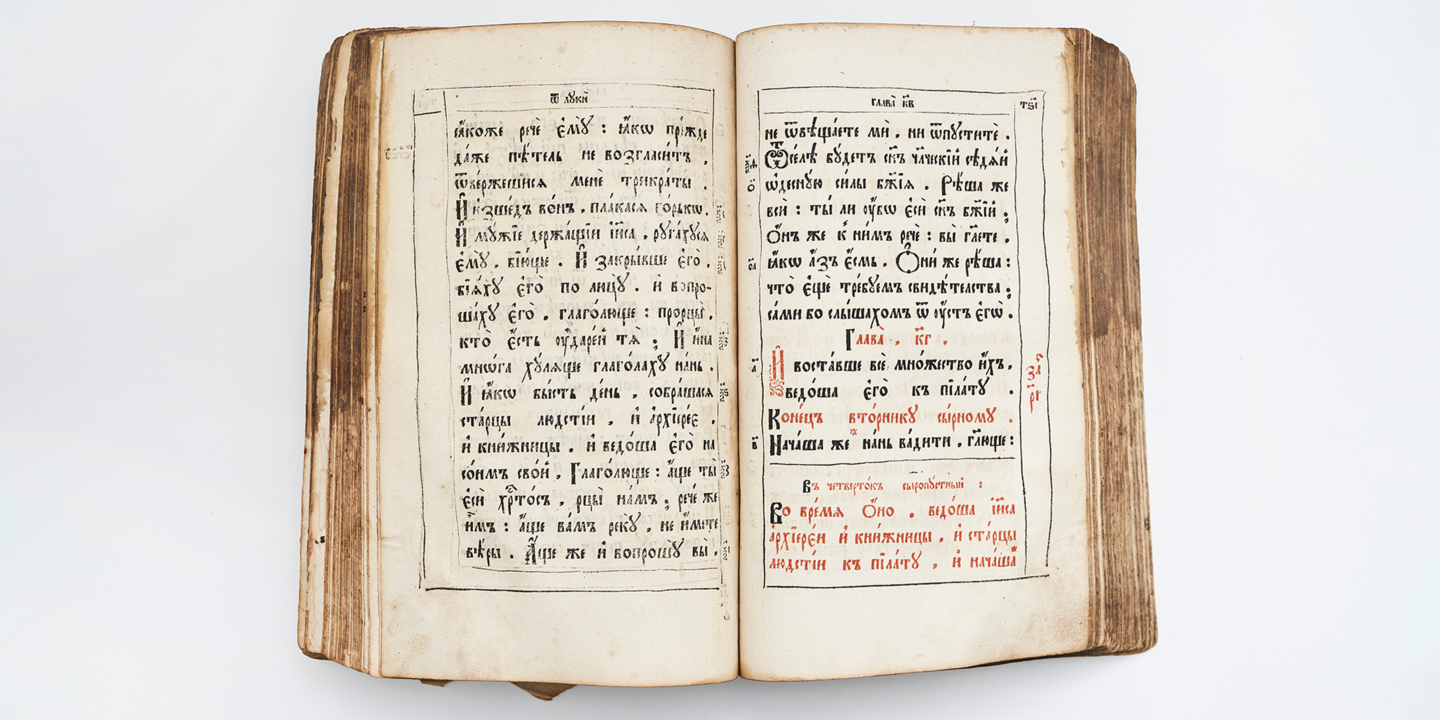 Ѿ лꙋки̑
ꙗ҆́коже речѐ є҆мꙋ̀ : ꙗ҆́кѡ пре́жде
да́же пѣ́тель не возгласи́тъ .
ѿве́ржешисѧ менѐ трикра́ты .
И҆ и҆зше́дъ во́нъ , пла́касѧ го́рькѡ .
И҆ мꙋ́жїе держа́щїи і҆и҃са , рꙋга́хꙋсѧ
є҆мꙋ̀ , бїю́ще . И҆ закры́вше є҆го̀ ,
бїѧ́хꙋ є҆го̀ по лицꙋ̀ . и҆ вопро-
ша́хꙋ є҆го̀ , глаго́люще : прорцы̀ ,
кто̀ є҆́сть ᲂу҆да́рей тѧ̀ ; И҆ и҆́на
мнѡ́га хꙋ́лѧще глаго́лахꙋ на́нь .
И҆ ꙗ҆́кѡ бы́сть де́нь , собра́шасѧ
ста́рцы лю́дстїи , и҆ а҆рхїере́є
и҆ кни́жницы . и҆ ведо́ша є҆го̀ на
со́нмъ сво́й , Глаго́люще : а҆́ще ты̀
є҆сѝ хрⷭ҇то́съ , рцы̀ на́мъ . рече́ же
и҆̀мъ : а҆́ще ва́мъ рекꙋ̀ , не и҆́мете
вѣ́ры . А҆́ще же и҆ вопрошꙋ̀ вы̀ .
глава̀ к҃в
тѕ҃і
не ѿвѣща́ете мѝ , ни ѿпꙋститѐ .
Ѿсе́лѣ бꙋ́детъ сн҃ъ чл҃ческїй сѣдѧ́й
ѡ҆деснꙋ́ю си́лы бж҃їѧ . Рѣ́ша же
всѝ : ты́ ли ᲂу҆̀бѡ є҆сѝ сн҃ъ бж҃їй ;
Ѻ҆́нъ же к ни́мъ речѐ : вы̀ гл҃ете ,
ꙗ҆́кѡ а҆́зъ є҆́смь . Ѻ҆ни́ же рѣ́ша :
что̀ є҆щѐ тре́бꙋемъ свидѣ́телства ;
са́ми бо слы́шахомъ ѿ ᲂу҆́стъ є҆гѡ̀ .
Глава̀ . к҃г .
И҆ воста́вше всѐ мно́жество и҆́хъ ,
ведо́ша є҆го̀ къ пїла́тꙋ .
Коне́цъ вто́рникꙋ сы́рномꙋ .
Нача́ша же на́нь ва́дити , гл҃юще :
за҄
р҃і
Въ четверто́къ сыропꙋ́стный :
Во вре́мѧ ѻ҆́но , ведо́ша і҆и҃са
а҆рхїере́и и҆ кни́жницы , и҆ ста́рцы
лю́дстїи къ пїла́тꙋ , и҆ нача́ша